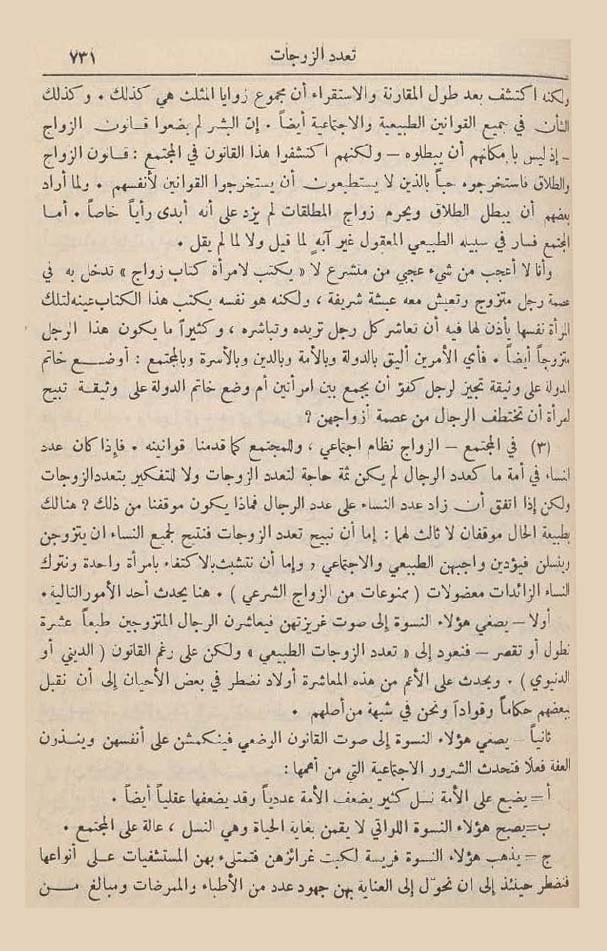 تعدد الزوجات ٧٣١
ولكنه اكتشف بعد طول المقارنة والاستقراء أن مجموع زوايا المثلث هي كذلك . وكذلك
الشأن في جميع القوانين الطبيعية والاجتماعية أيضاً . إن البشر لم يضعوا قانون الزواج
– إذ ليس بإمكانهم أن يبطلوه – ولكنهم اكتشفوا هذا القانون في المجتمع : قانون الزواج
والطلاق فاستخرجوه حباً بالذين لا يستطيعون أن يستخرجوا القوانين لأنفسهم . ولما أراد
بعضهم أن يبطل الطلاق ويحرم زواج المطلقات لم يزد على أنه أبدى رأياً خاصاً . أما
المجتمع فسار في سبيله الطبيعي المعقول غير آبهٍ لما قيل ولا لما لم يقل .
وأنا لا أعجب من شيء عجبي من متشرع لا « يكتب لامرأة كتاب زواج » تدخل به في
عصمة رجل متزوج وتعيش معه عيشة شريفة ، ولكنه هو نفسه يكتب هذا الكتاب عينه لتلك
المرأة نفسها يأذن لها فيه أن تعاشر كل رجل تريده وتباشره ، وكثيراً ما يكون هذا الرجل
متزوجاً أيضاً . فأي الأمرين أليق بالدولة وبالأمة وبالدين وبالأسرة وبالمجتمع : أوضع خاتم
الدولة على وثيقة تجيز لرجل كفؤ أن يجمع بين امرأتين أم وضع خاتم الدولة على وثيقة تبيح
لمرأة أن تختطف الرجال من عصمة أزواجهن ؟
(٣) في المجتمع – الزواج نظام اجتماعي ، وللمجتمع كما قدمنا قوانينه . فإذا كان عدد
النساء في أمة ما كعدد الرجال لم يكن ثمة حاجة لتعدد الزوجات ولا للتفكير بتعدد الزوجات
ولكن إذا اتفق أن زاد عدد النساء على عدد الرجال فماذا يكون موقفنا من ذلك ؟ هنالك
بطبيعة الحال موقفان لا ثالث لهما : إما أن نبيح تعدد الزوجات فنتيح لجميع النساء ان يتزوجن
وينسلن فيؤدين واجبهن الطبيعي والاجتماعي ، وإما أن نتشبث بالاكتفاء بامرأة واحدة ونترك
النساء الزائدات معضولات ( ممنوعات من الزواج الشرعي ) . هنا يحدث أحد الأمور التالية .
أولا – يصغي هؤلاء النسوة إلى صوت غريزتهن فيعاشرن الرجال المتزوجين طبعاً عشرة
تطول أو تقصر – فنعود إلى « تعدد الزوجات الطبيعي » ولكن على رغم القانون ( الديني أو
الدنيوي ) . ويحدث على الأعم من هذه المعاشرة أولاد نضطر في بعض الأحيان إلى أن نقبل
ببعضهم حكاماً وقواداً ونحن في شبهة من أصلهم .
ثانياً – يصغي هؤلاء النسوة إلى صوت القانون الوضعي فينكمشن على أنفسهن وينذرن
العفة فعلًا فتحدث الشرور الاجتماعية التي من أهمها :
أ = يضيع على الأمة نسل كثير يضعف الأمة عددياً وقد يضعفها عقلياً أيضاً .
ب = يصبح هؤلاء النسوة اللواتي لا يقمن بغاية الحياة وهي النسل ، عالة على المجتمع .
ج – يذهب هؤلاء النسوة فريسة لكبت غرائزهن فتمتلىء بهن المستشفيات على أنواعها
فنضطر حينئذ إلى ان نحول إلى العناية بهن جهود عدد من الأطباء والممرضات ومبالغ من